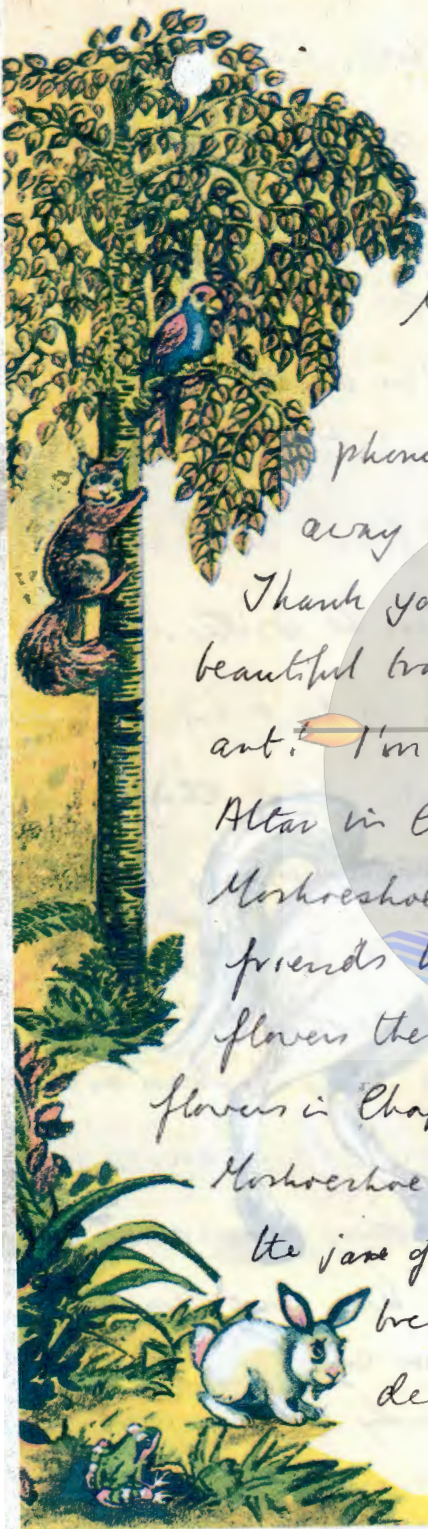 phone
away
Thank yo
beautiful tra
ant! I'm
Altar in C
Moshoeshoe
friends b
flowers the
flowers in Chap
Moshoeshoe
the jam of
bre
de